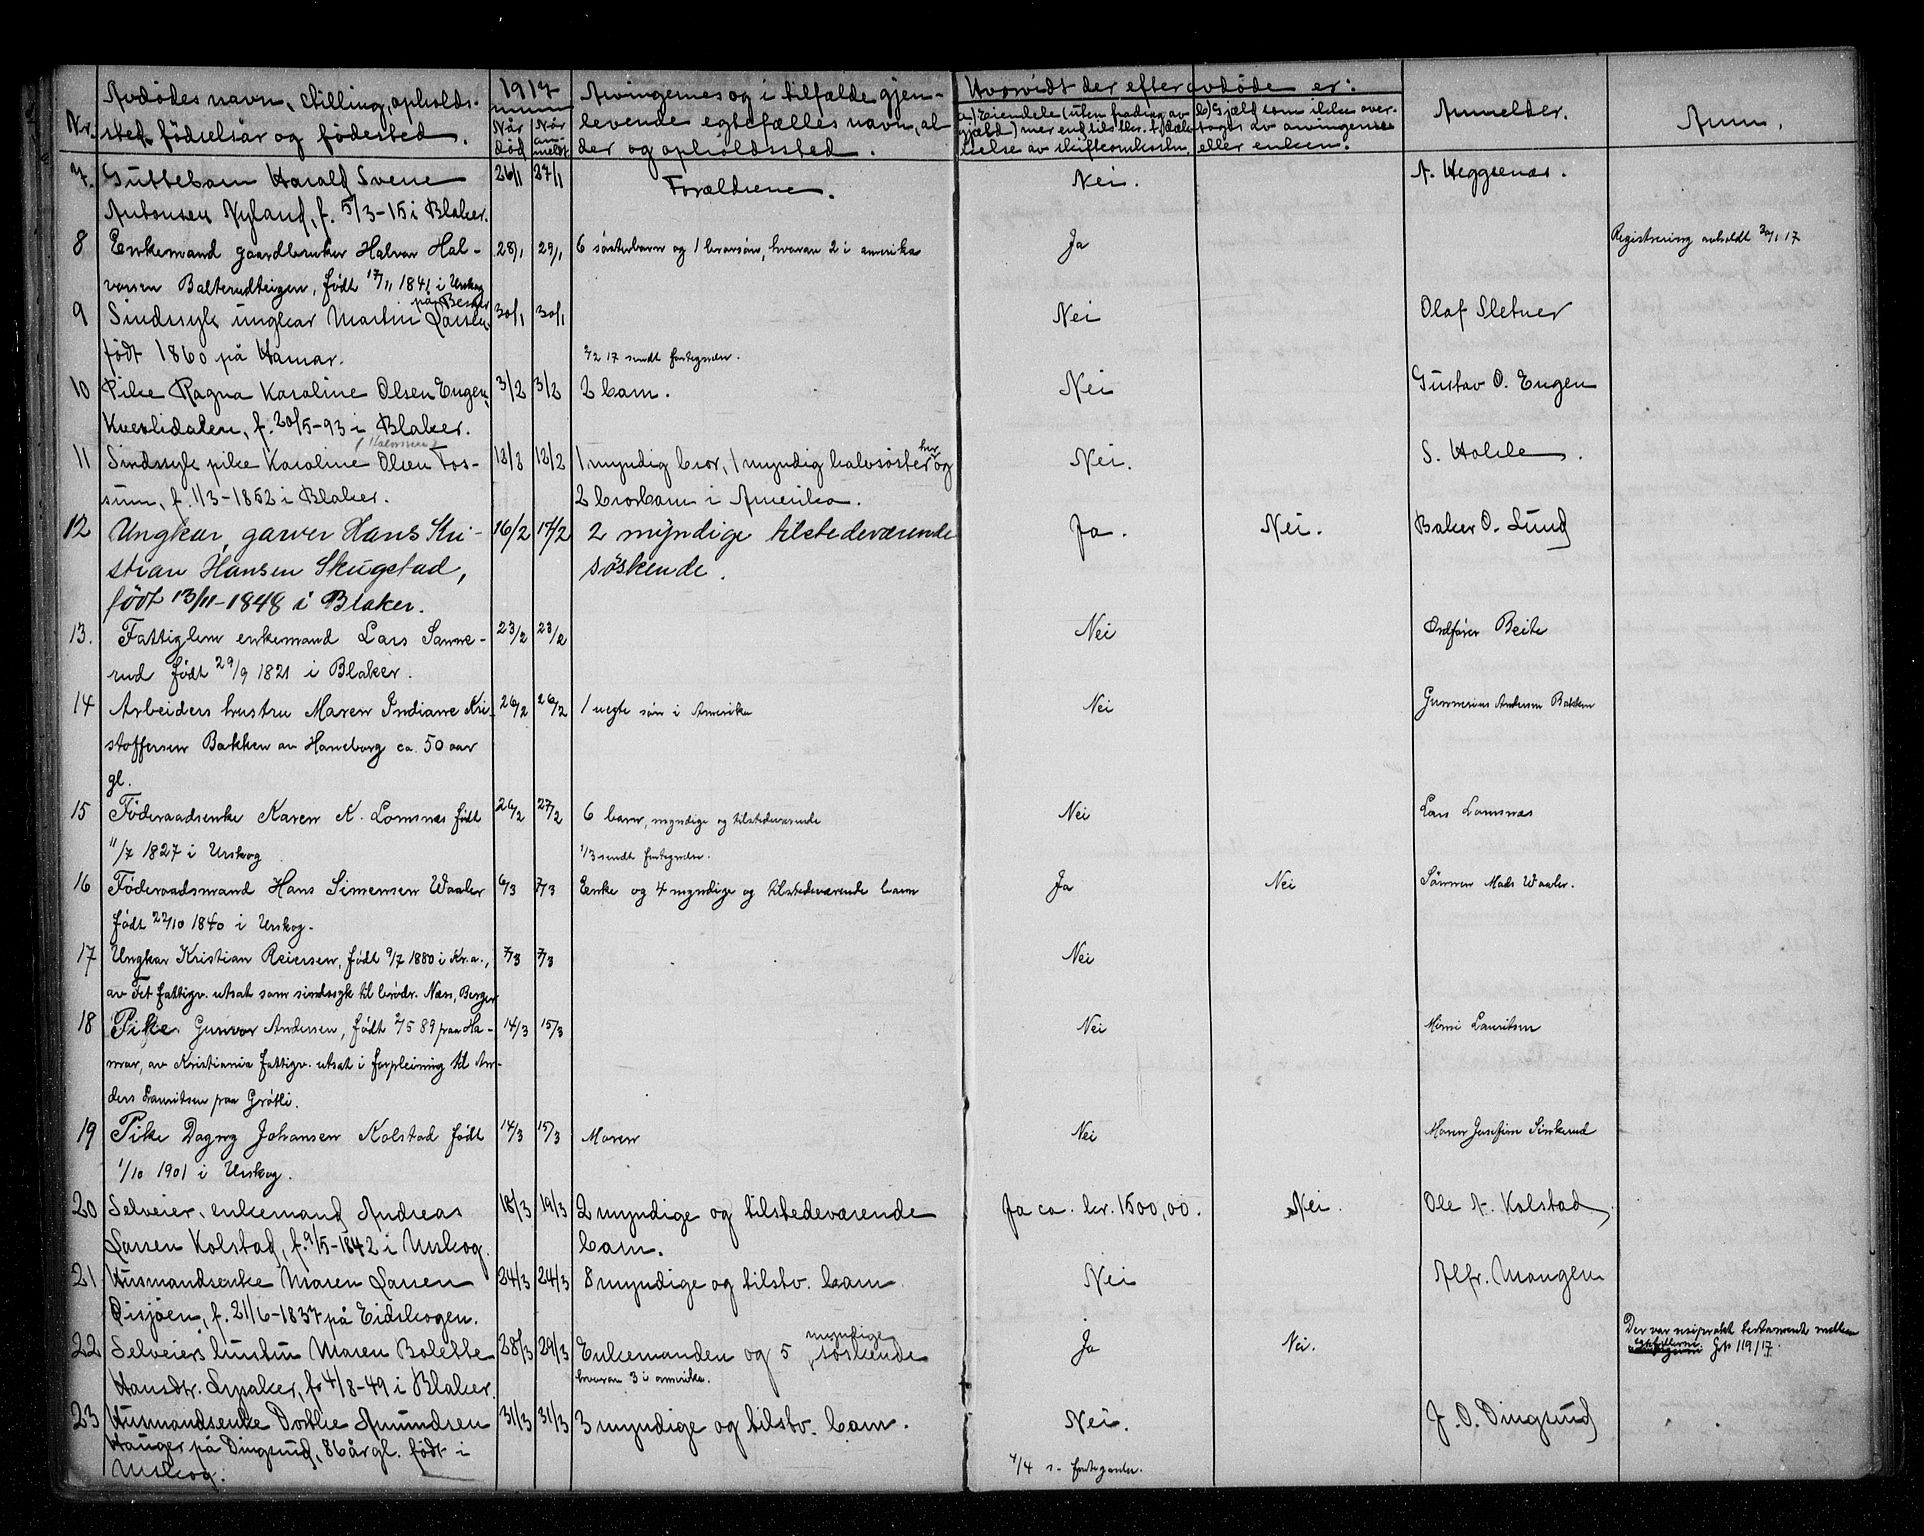 Nr. Avdødes navn, stilling, opholds-
sted, fødselsår og fødested.
1917
Når død
Når anmeldt
Arvingernes og i tilfælde gjen-
levende egtefælles navn, al-
der og opholdssted.
Hvorvidt der efter avdøde er:
a) Eiendele (uten fradrag av
gjæld) mer end til
telse av skifteomkostn.
b) Gjæld som ikke over-
tages av arvingerne
eller enken.
Anmelder.
Anm.
7. Guttebarn Harald Svene 26/1 27/1 Forældrene. Nei. A. Heggsenæs.
Antonsen Nyland, f. 5/3-15 i Blaker.
8 Enkemand gaardbruker Halvor Hal- 28/1 29/1 6 søsterbarn og 1 brorsøn, hvorav 2 i amerika Ja Registrering avholdt 30/1 17
vorsen Balterudteigen, født 17/11 1841 i Urskog
på Berger
9 Sindssyk ungkar Martin Larsen 30/1 30/1 Nei Olaf Sletner
født 1860 på Hamar. 2/2 17 sendt fortegnelse.
10 Pike Ragna Karoline Olsen Engen 3/2 3/2 2 barn. Nei Gustav O. Engen
Kverlidalen, f. 20/5-93 i Blaker.
11 Sindssyk pike Karoline Olsen Fos- 12/2 1 myndig bror, 1 myndig halvsøster her og Nei. S. Holde.
sum, f. 1/3-1852 i Blaker. 2 brorbarn i Amerika.
12 Ungkar, garver Hans Kri- 16/2 17/2 2 myndige tilstedeværende Ja. Nei. Baker O. Lund
stian Hansen Skugstad, søskende.
født 13/11-1848 i Blaker.
13. Fattiglem enkemand Lars Sanne- 23/2 23/2 Nei Ordfører Beite
rud født 29/9 1821 i Blaker.
14 Arbeiders hustru Maren Indiane Kri- 26/2 26/2 1 uegte søn i Amerika Nei Gunnerius Andersen Bakken
stoffersen Bakken av Haneborg ca. 50 aar
gl.
15 Føderaadsenke Karen K. Lomsnæs født 26/2 27/2 6 barn, myndige og tilstedeværende Nei Lars Lomsnæs
11/7 1827 i Urskog 1/3 sendt fortegnelse.
16 Føderaadsmand Hans Simensen Waaler 6/3 7/3 Enke og 4 myndige og tilstedeværende barn Ja Nei Sønnen Mads Waaler.
født 22/10 1840 i Urskog.
17 Ungkar Kristian Reiersen, født 9/7 1880 i Kr.a., 7/3 7/3 Nei
av Fet fattigv. utsat som sindssyk til brødr. Næss, Berger
18 Pike Gunvor Andersen, født 2/5 89 paa Ha- 14/3 15/3 Nei Mimi Lauritsen
mar, av Kristiania fattigv. utsat i forpleining til An-
ders Lauritsen paa Grøtli.
19 Pike Dagny Johansen Kolstad født 14/3 15/3 Moren Nei Maren Josefine Sinkerud
1/10 1901 i Urskog.
20 Selveier, enkemand Andreas 18/3 19/3 2 myndige og tilstedeværende Ja ca. kr. 1500,00. Nei. Ole A. Kolstad
Larsen Kolstad, f. 9/5-1842 i Urskog. barn.
21 Husmandsenke Maren Larsen 24/3 24/3 8 myndige og tilstv. barn Nei Alfr. Mangen
Risjøen, f. 21/6-1837 på Eidskogen.
22 Selveiers hustru Maren Bolette 28/3 29/3 Enkemanden og 5 myndige søskende Ja Nei. Der var reciprokt testamente mellem
Hansdtr. Lysaker, f. 4/8-49 i Blaker. hvorav 3 i amerika. egtefellerne. 119/17.
23 Husmandsenke Dorthe Amundsen 31/3 31/3 3 myndige og tilstv. barn. Nei. J. O. Dingsund
Hauger på Dingsund, 86 år gl. født i
Urskog. 4/4 s. fortegnelse.